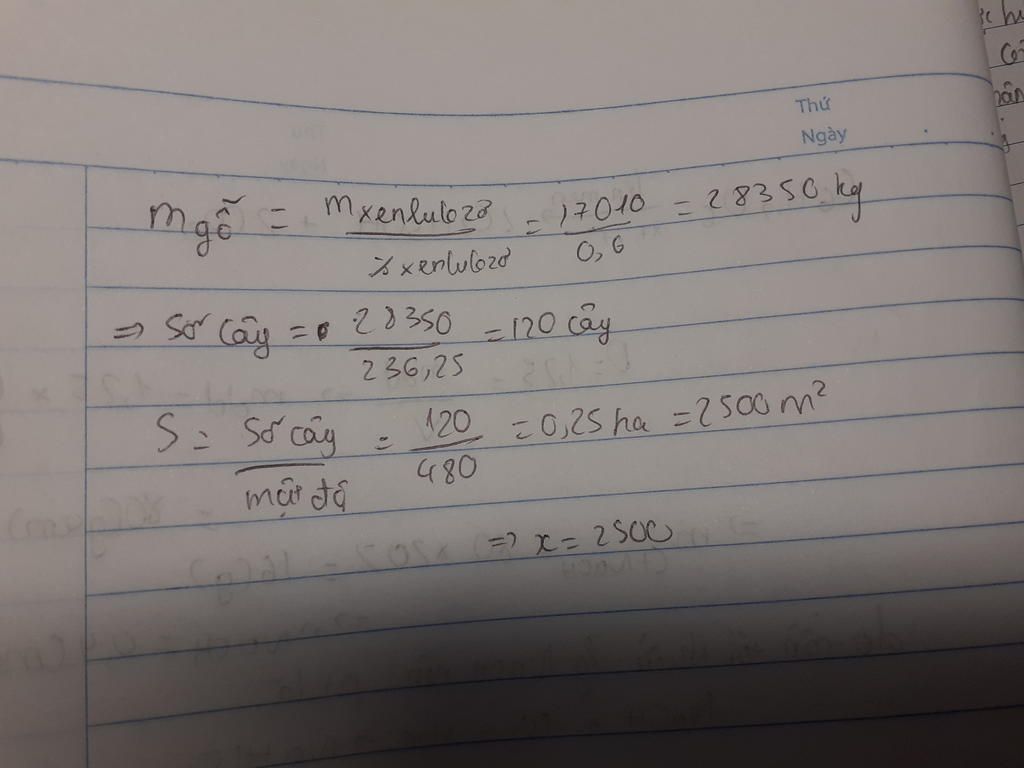 Thứ
Ngày
m gỗ = m xenlulozơ / % xenlulozơ = 17010 / 0,6 = 28350 kg
⇒ Số cây = 28350 / 236,25 = 120 cây
S = Số cây / mật độ = 120 / 480 = 0,25 ha = 2500 m²
⇒ x = 2500